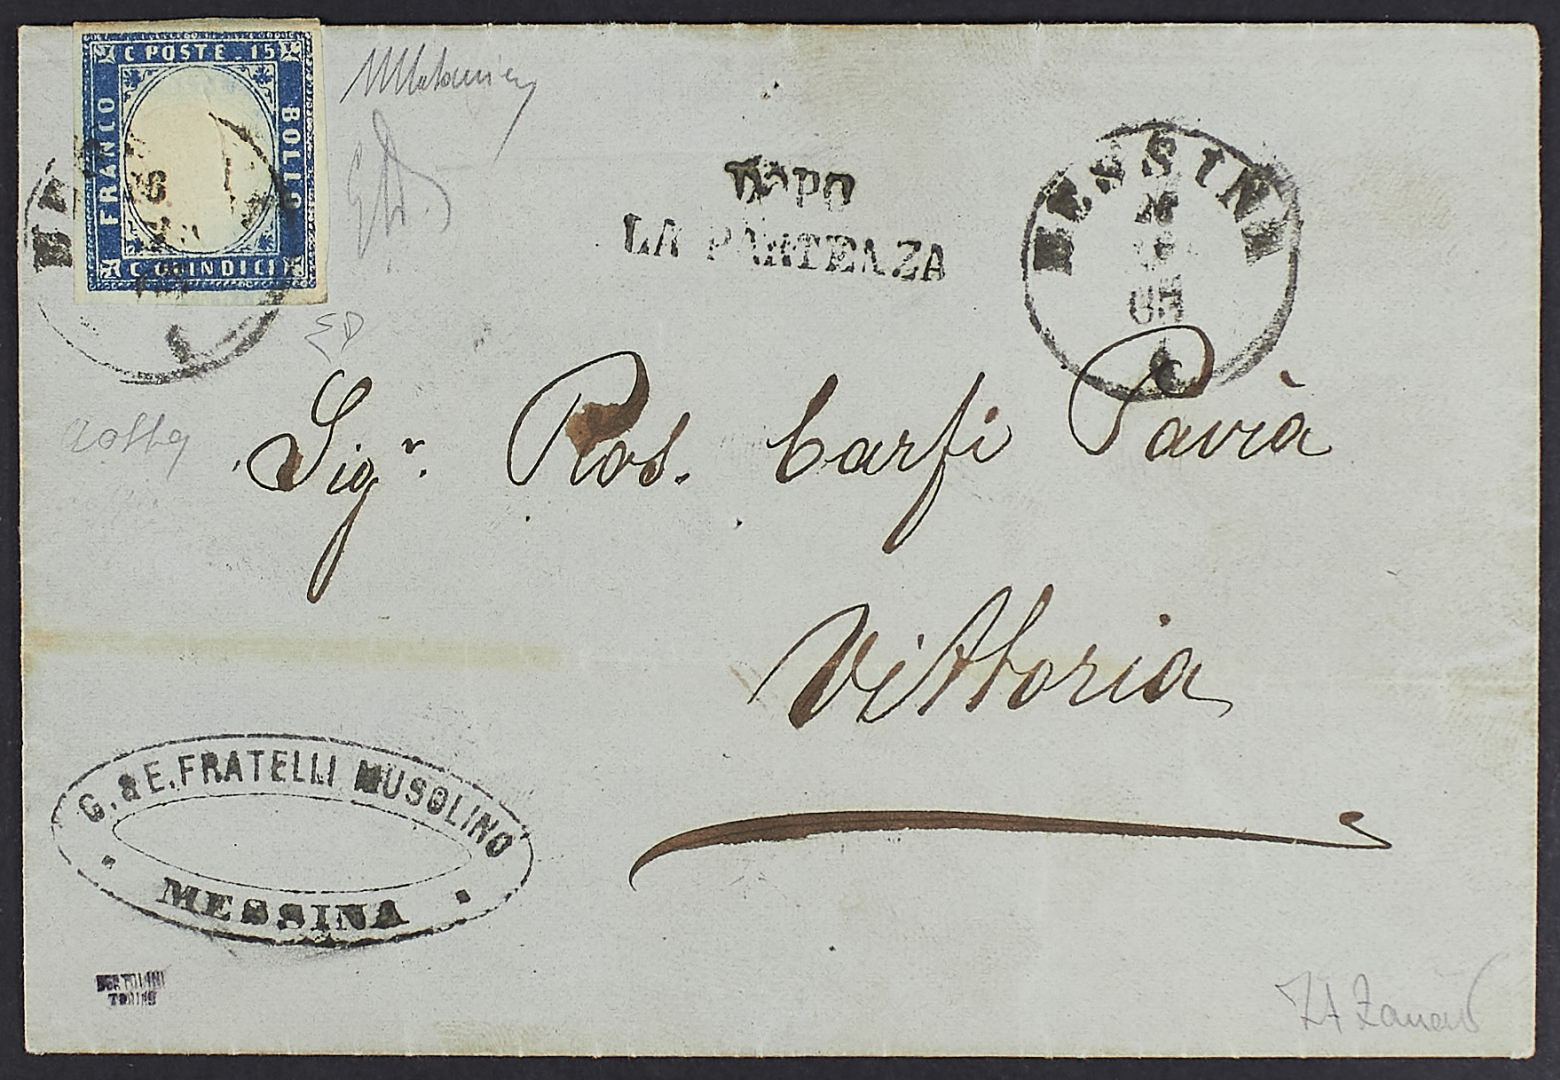 C POSTE 15
FRANCO
BOLLO
C QUINDICI
16
DOPO
LA PARTENZA
MESSINA
Sigr. Ros. Carfi Pavià
Vittoria
G. & E. FRATELLI MUSOLINO
MESSINA
BORTOLINI
TORINO